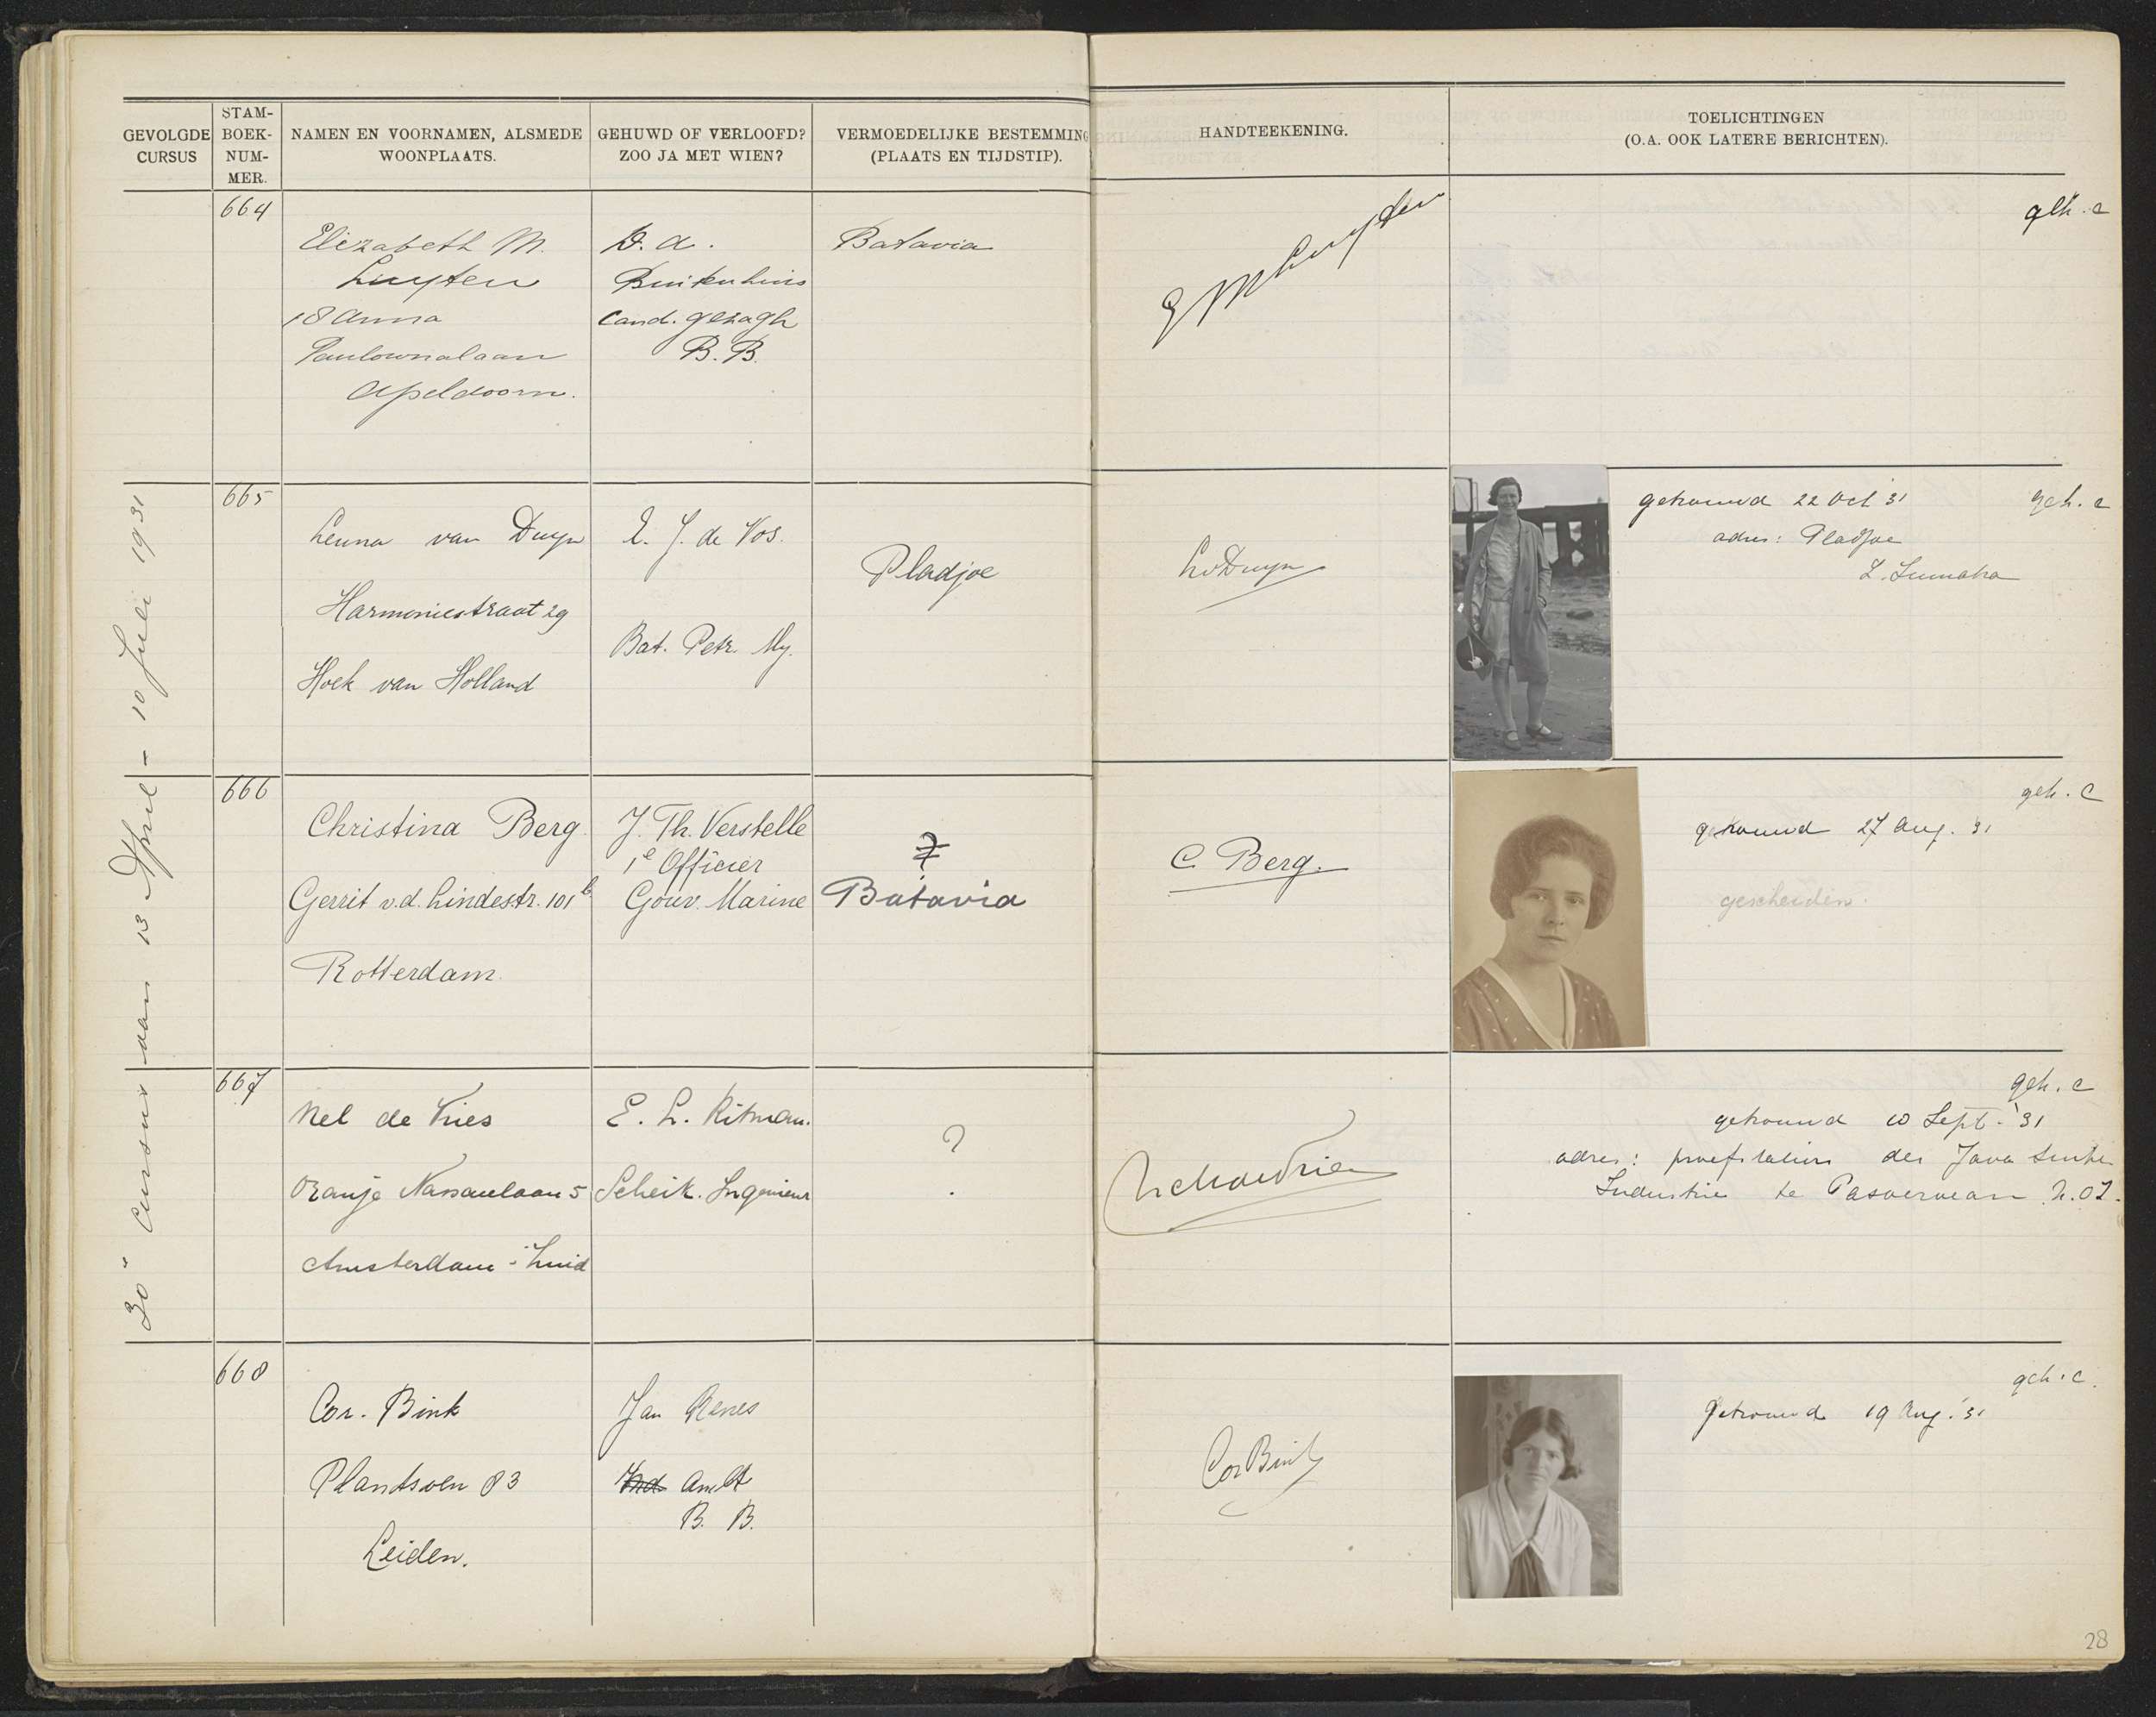 GEVOLGDE CURSUS
STAM-BOEK-NUM-MER.
NAMEN EN VOORNAMEN, ALSMEDE WOONPLAATS.
GEHUWD OF VERLOOFD? ZOO JA MET WIEN?
VERMOEDELIJKE BESTEMMING (PLAATS EN TIJDSTIP).
HANDTEEKENING.
TOELICHTINGEN
(O.A. OOK LATERE BERICHTEN).
30e Cursus van 13 April - 10 Juli 1931
664
Elizabeth M.
Luyten
18 Anna
Paulownalaan
Apeldoorn.
D. A.
Buikenhuis
Cand. gezagh
B. B.
Batavia
EMLuyten
665
Lenna van Duyn
Harmoniestraat 29
Hoek van Holland
E. J. de Vos.
Bat. Petr. My.
Pladjoe
LvDuyn
getrouwd 22 Oct '31
geh. c
adres: Pladjoe
Z. Sumatra
666
Christina Berg
Gerrit v.d. Lindestr. 101b
Rotterdam.
J. Th. Verstelle
1e Officier
Gouv. Marine
?
Batavia
C. Berg.
geh. c
getrouwd 27 Aug. '31
gescheiden.
667
Nel de Vries
Oranje Nassaulaan 5
Amsterdam-Zuid
E. L. Ritman.
Scheik. Ingenieur
?
geh. c
getrouwd 10 Sept. '31
adres: proefstation der Java Suiker
Industrie te Pasoeroean N.O.I.
668
Cor. Bink
Plantsoen 83
Leiden.
Jan Renes
Ind. Ambt
B. B.
Cor Bink
geh. c.
Getrouwd 19 Aug. '31
28